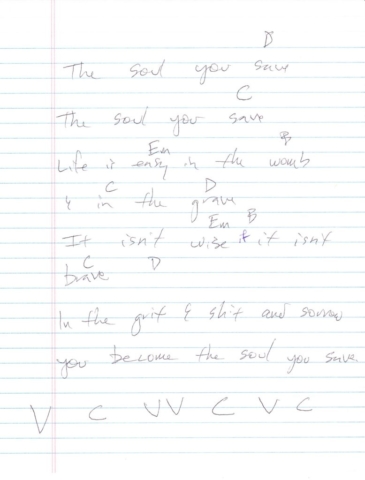 D
The soul you save
C
The soul you save
Em B
Life is easy in the womb
C D
& in the grave
Em B
It isn't wise & it isn't
C D
brave
In the grit & shit and sorrow
you become the soul you save
V C VV C V C